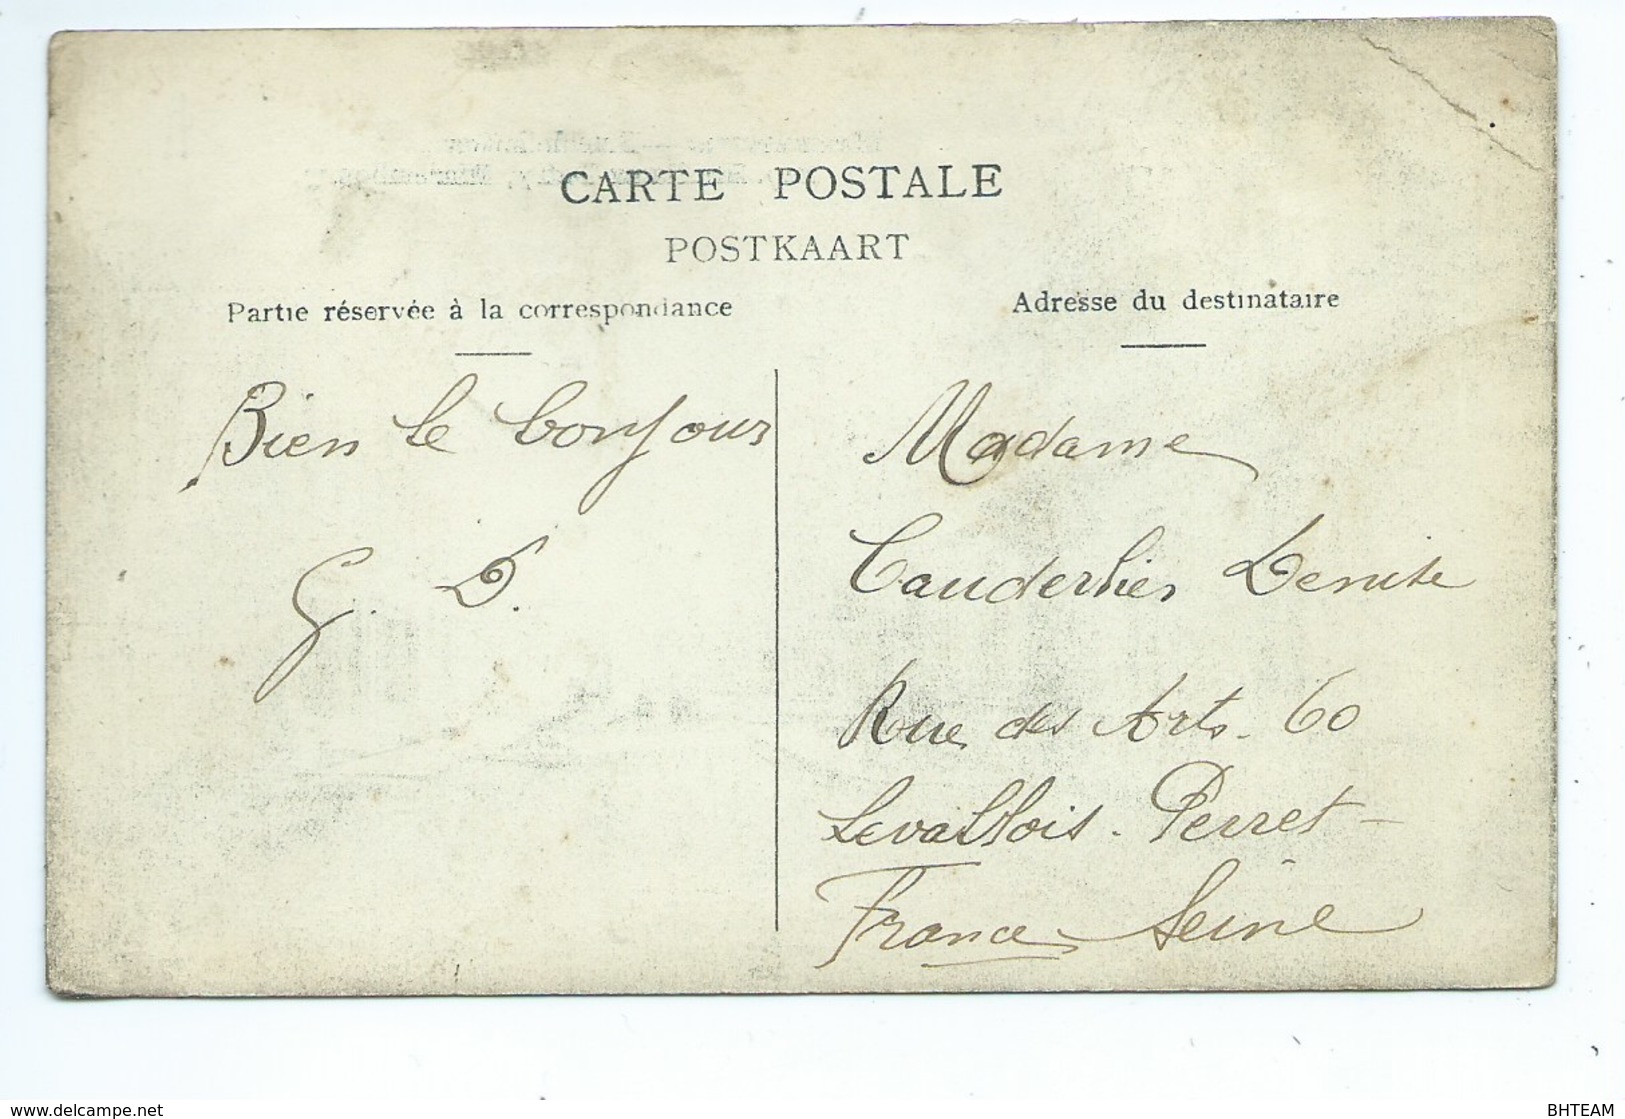 CARTE POSTALE
POSTKAART
Partie réservée à la correspondance
Adresse du destinataire
Bien le bonjour
G. D.
Madame
Cauderlier Denise
Rue des Arts. 60
Levallois-Perret-
France Seine
www.delcampe.net
BHTEAM